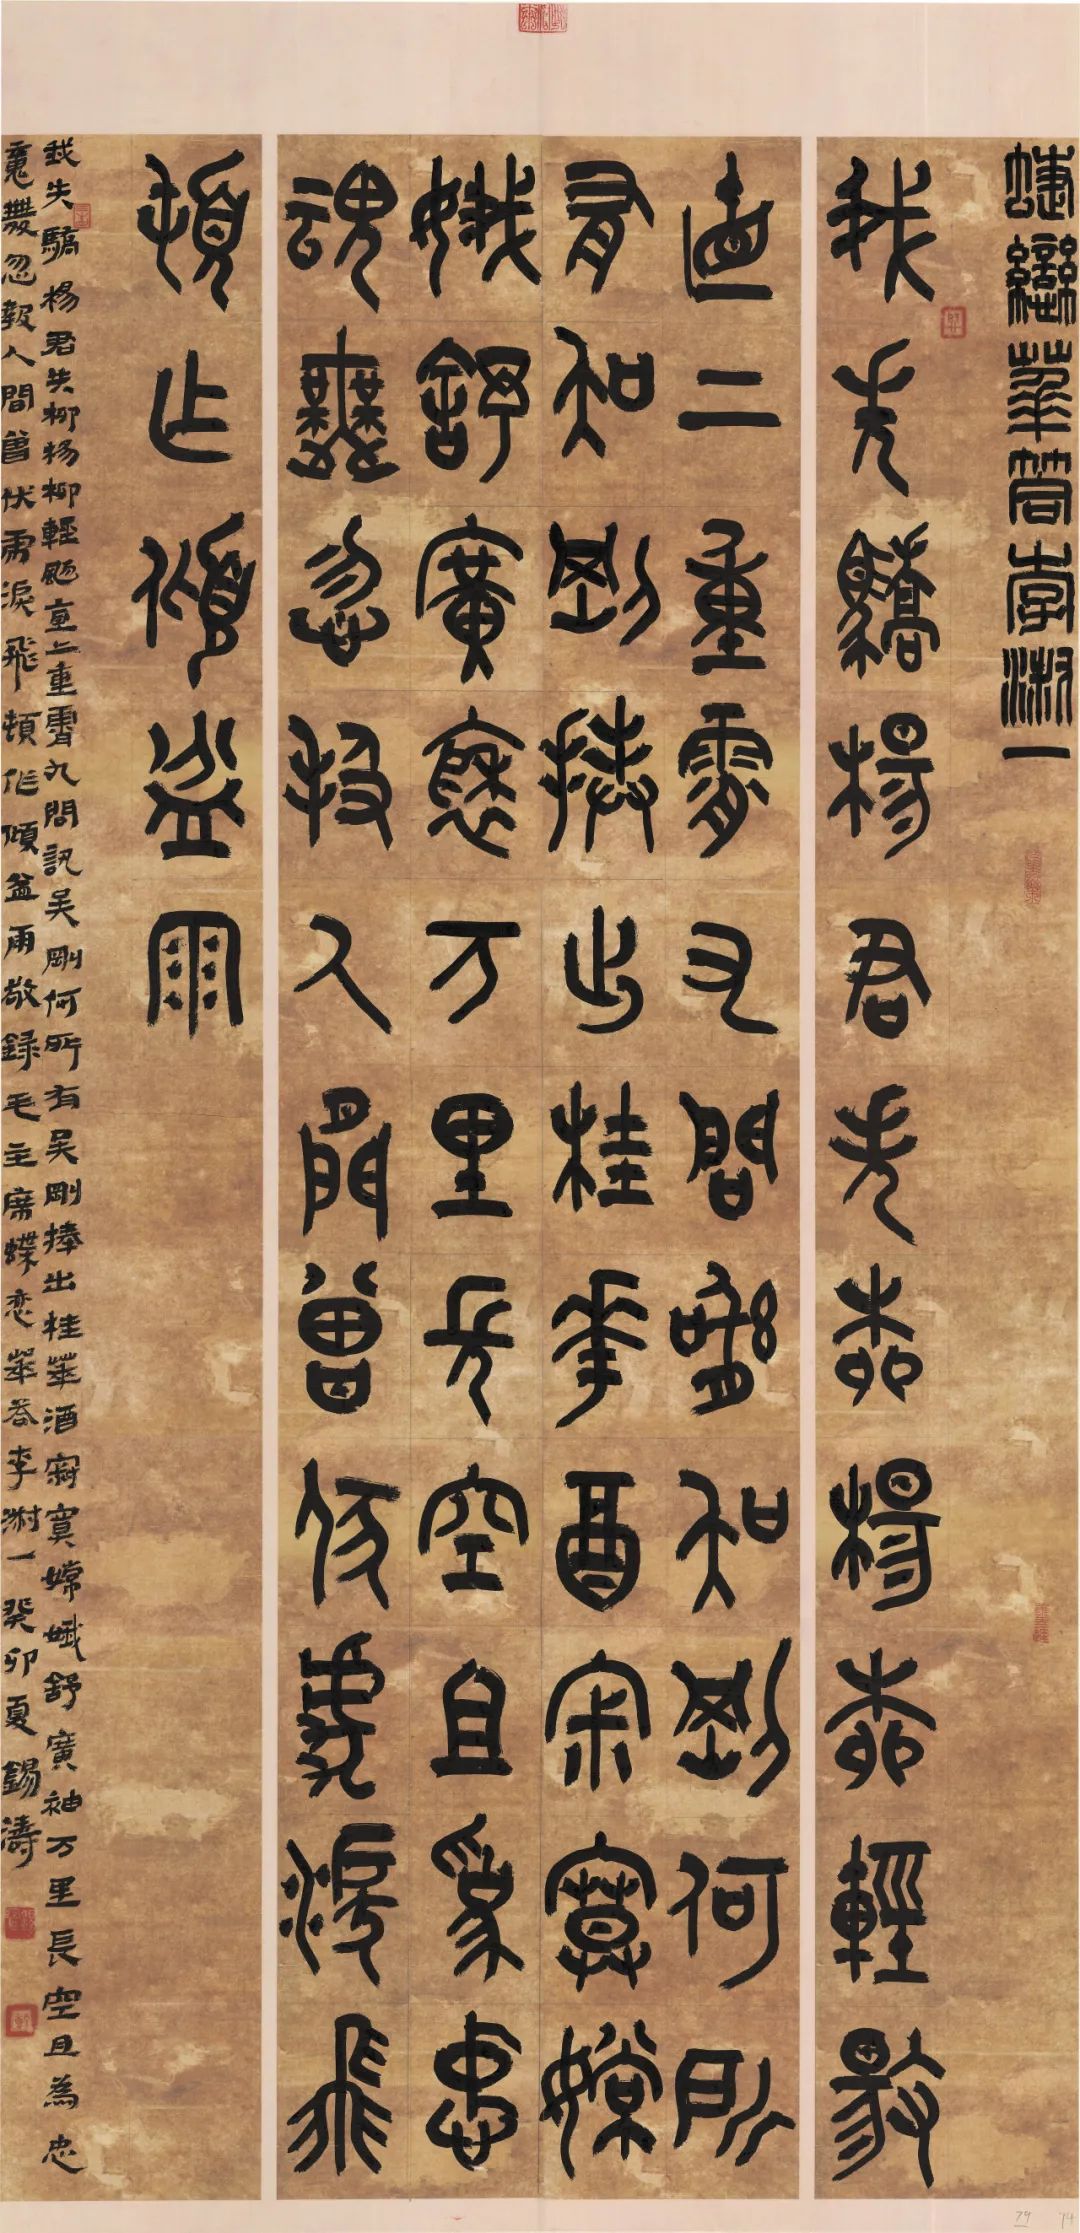 蝶戀華答李淑一
我失驕楊君失柳楊柳輕颺
直上重霄九問訊吳剛何所
有吳剛捧出桂華酒寂寞嫦
娥舒廣袖万里長空且為忠
魂舞忽報人間曾伏虎淚飛
頓作傾盆雨
我失驕楊君失柳楊柳輕颺直上重霄九問訊吳剛何所有吳剛捧出桂華酒寂寞嫦娥舒廣袖万里長空且為忠
魂舞忽報人間曾伏虎淚飛頓作傾盆雨敬錄毛主席蝶恋華答李淑一癸卯夏錫濤